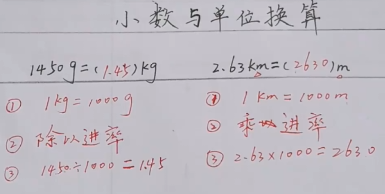 小数与单位换算
1450g=(1.45)kg
① 1kg=1000g
② 除以进率
③ 1450÷1000=1.45
2.63km=(2630)m
① 1km=1000m
② 乘以进率
③ 2.63×1000=2630